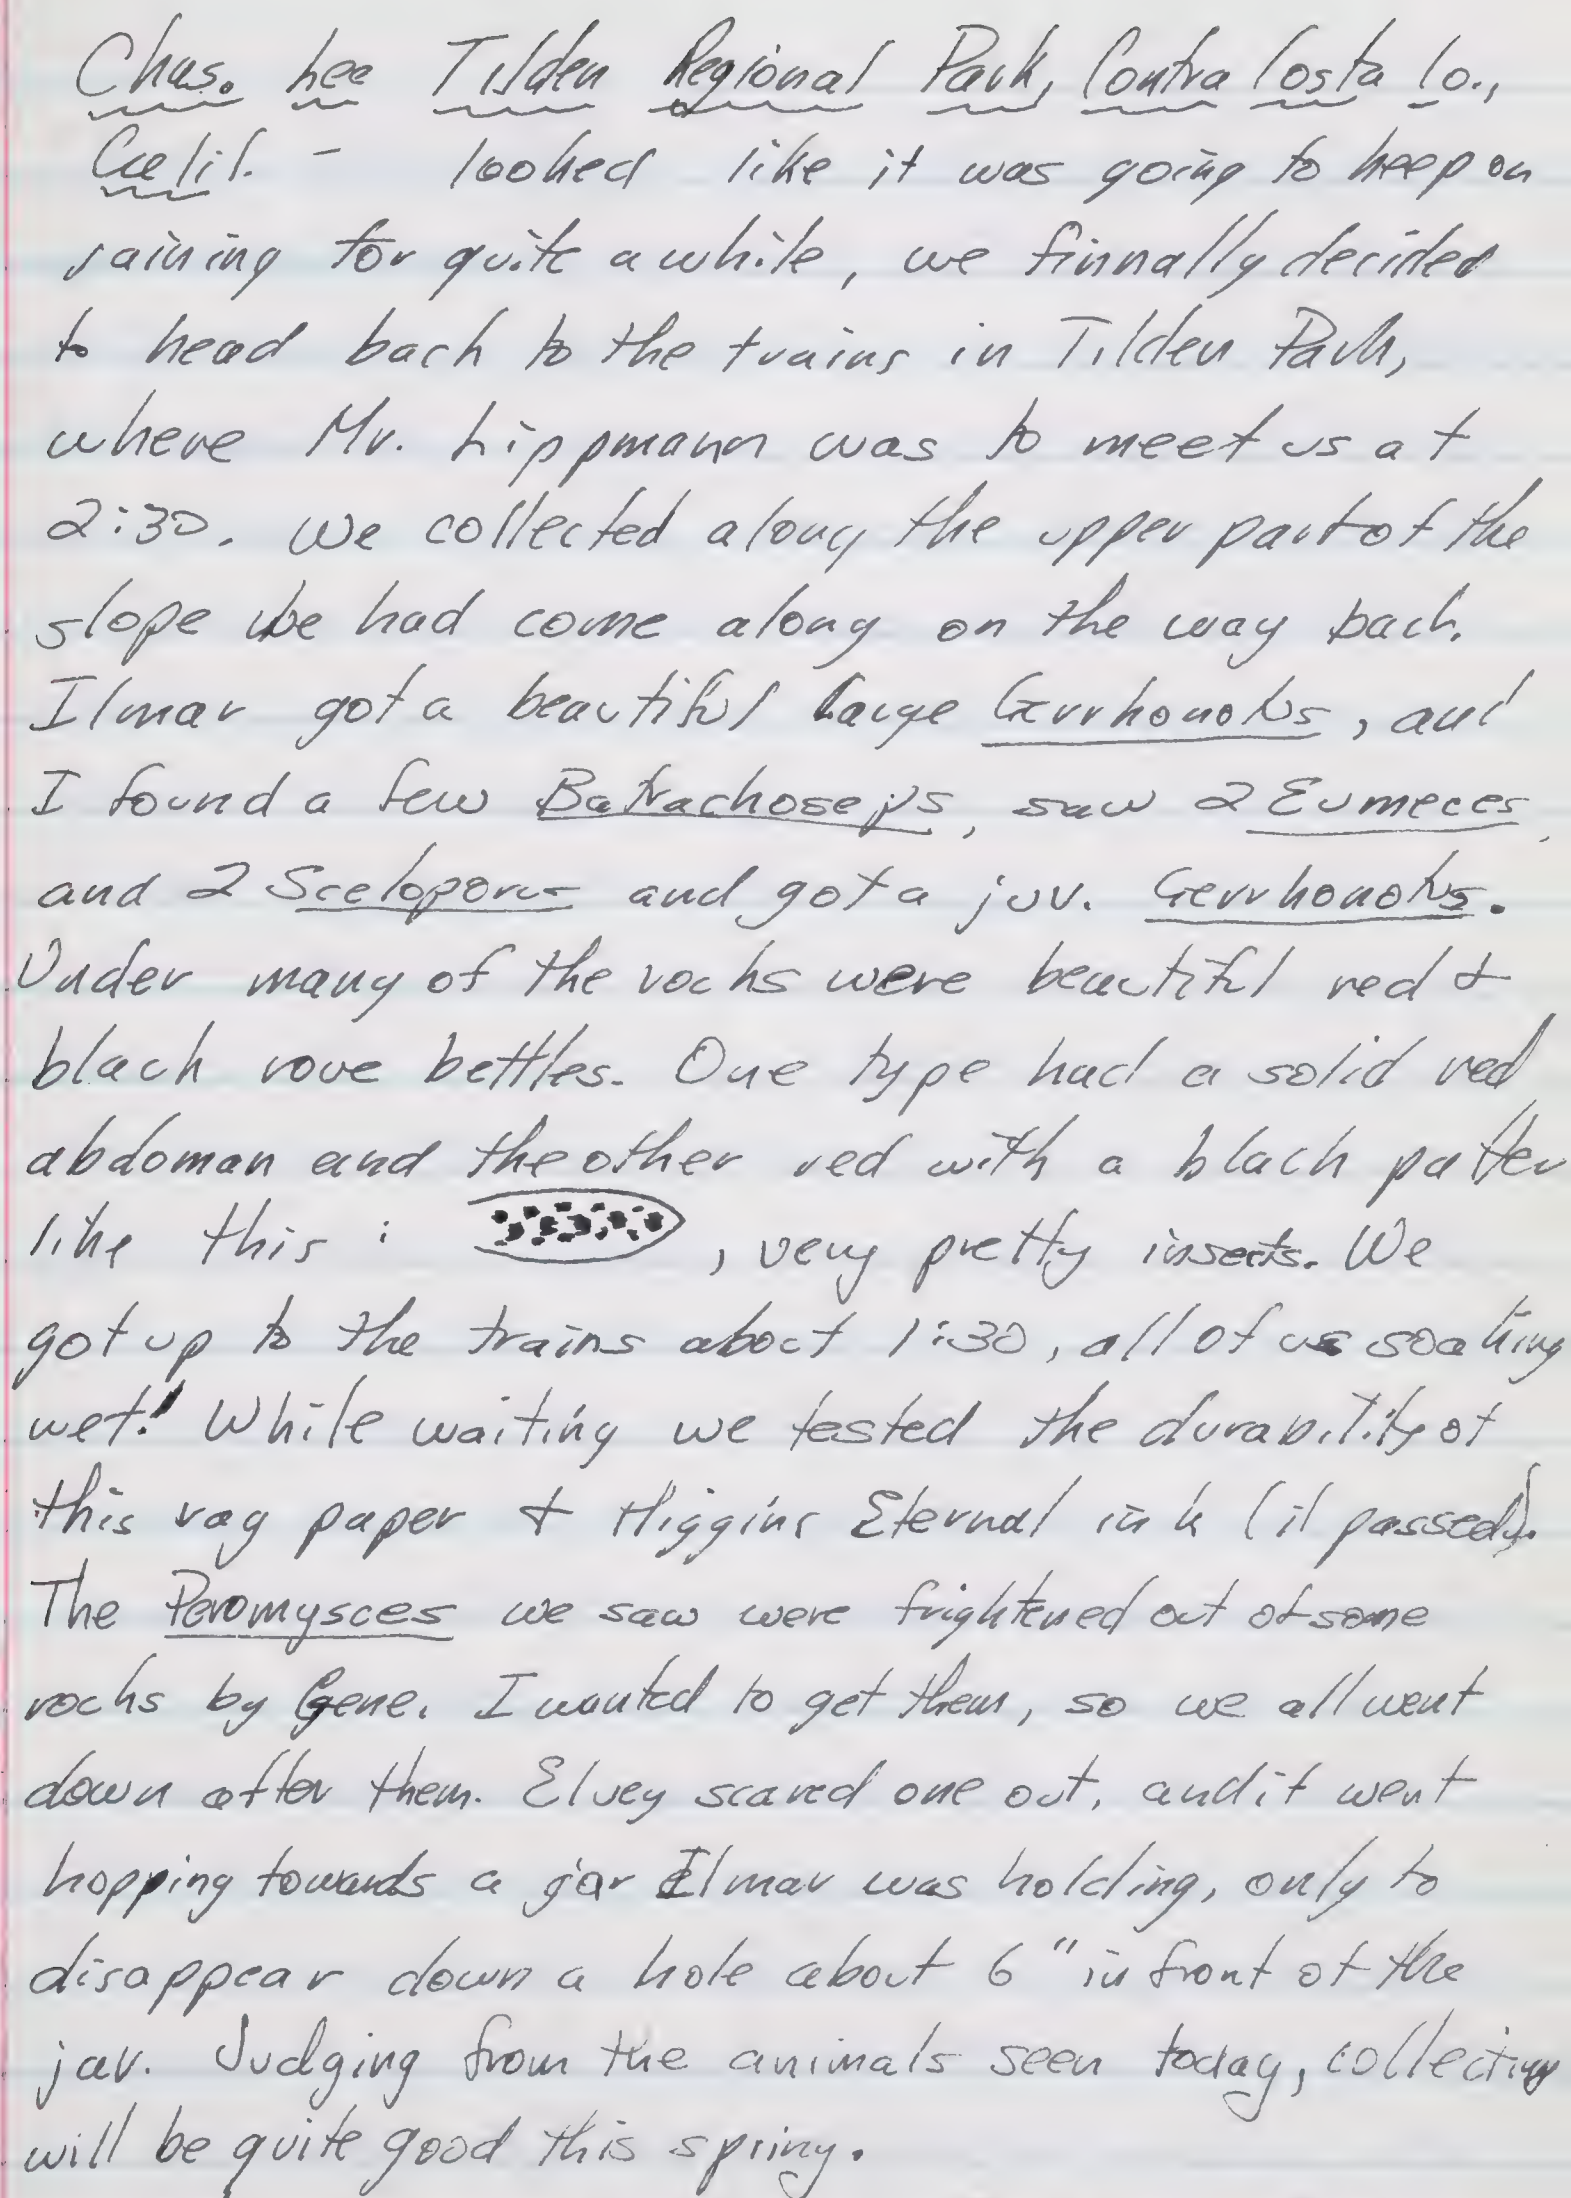 Chas. Lee Tilden Regional Park, Contra Costa Co.,
Calif. - looked like it was going to keep on
raining for quite awhile, we finnally decided
to head back to the trains in Tilden Park,
where Mr. Lippmann was to meet us at
2:30. We collected along the upper part of the
slope we had come along on the way back.
Ilmar got a beautiful large Gerrhonotus, and
I found a few Batrachoseps, saw 2 Eumeces,
and 2 Sceloporus and got a juv. Gerrhonotus.
Under many of the rocks were beautiful red +
black rove bettles. One type had a solid red
abdoman and the other red with a black patter
like this : , very pretty insects. We
got up to the trains about 1:30, all of us soaking
wet! While waiting we tested the durability of
this rag paper + Higgins Eternal ink (it passed).
The Peromysces we saw were frightened out of some
rocks by Gene. I wanted to get them, so we all went
down after them. Elvey scared one out, and it went
hopping towards a jar Ilmar was holding, only to
disappear down a hole about 6" in front of the
jar. Judging from the animals seen today, collecting
will be quite good this spring.